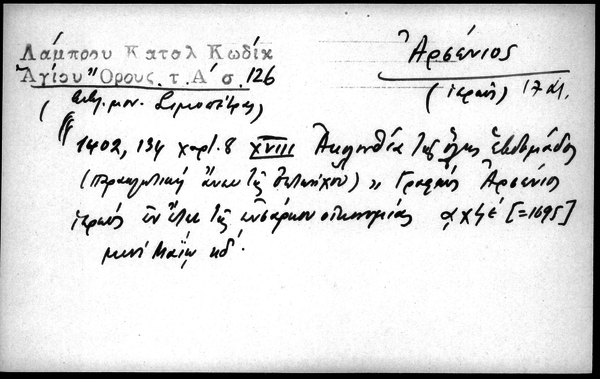 Λάμπρου Κατολ Κωδίκ
Ἁγίου Ὄρους. τ. Α´ σ. 126
Ἀρσένιος
(ἱερεύς) 17 αἰ.
( μον. Σιμοπέτρας)
1402, 134 χαρτ. 8 XVIII Ἀκολουθία τῆς ὅλης ἑβδομάδος
(Παρακλητική ἄνευ τῆς Ὀκτωήχου) „ Γραφεὺς Ἀρσένιος
ἱερεύς ἐν ἔτει τῆς ἐνσάρκου οἰκονομίας αχϟέ [=1695]
μηνί Μαΐῳ κδ´.